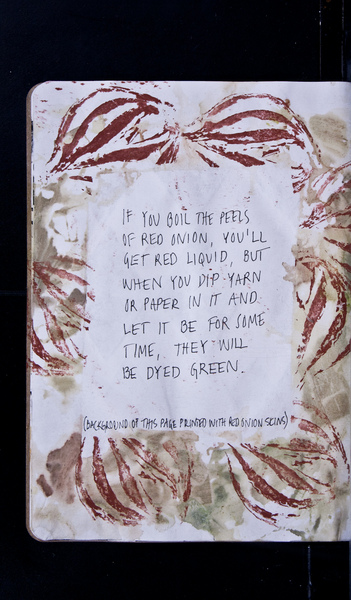 IF YOU BOIL THE PEELS
OF RED ONION, YOU'LL
GET RED LIQUID, BUT
WHEN YOU DIP YARN
OR PAPER IN IT AND
LET IT BE FOR SOME
TIME, THEY WILL
BE DYED GREEN.
(BACKGROUND OF THIS PAGE PRINTED WITH RED ONION SKINS)